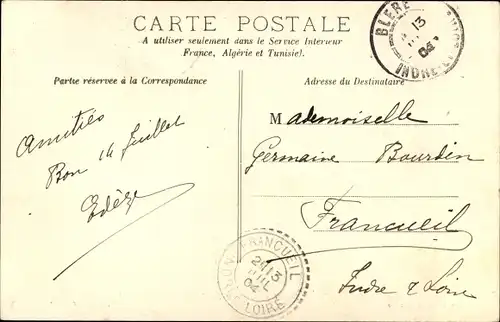 CARTE POSTALE
A utiliser seulement dans le Service Interieur
France, Algérie et Tunisie).
Partie réservée à la Correspondance
Adresse du Destinataire
Amitiés
Bon 14 Juillet
Mademoiselle
Germaine Bourdin
Francueil
Indre & Loire
BLERE
13
04
INDRE
FRANCUEIL
13
JUIL
04
LOIRE